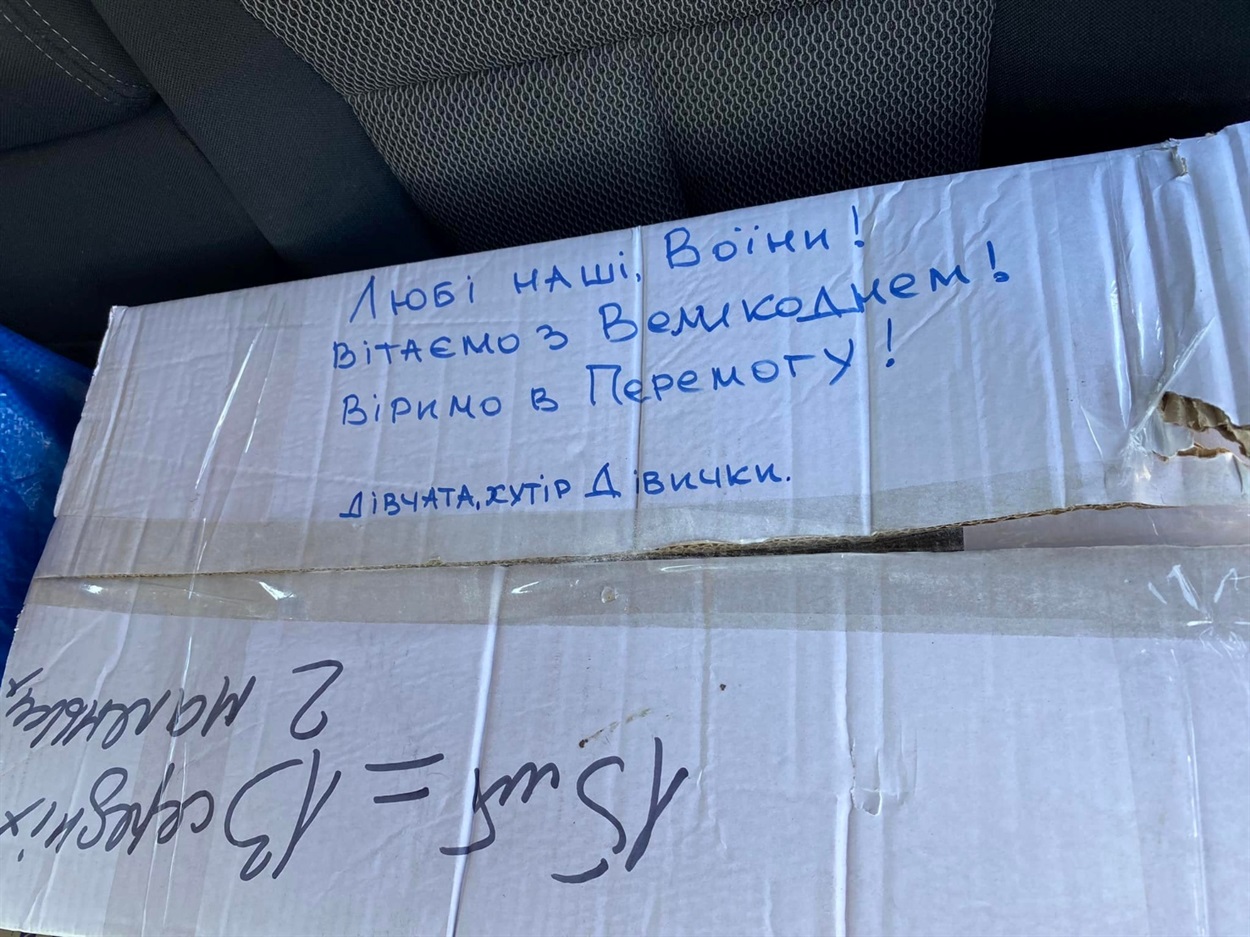 Любі наші, Воїни!
вітаємо з Великоднем!
віримо в Перемогу!
дівчата, хутір Дівички.
15 шт = 13 середніх
2 маленьких